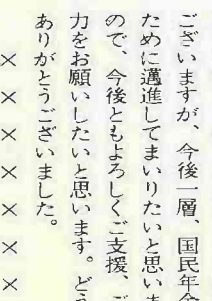 ございますが、今後一層、国民年金
ために邁進してまいりたいと思いま
ので、今後ともよろしくご支援、ご
力をお願いしたいと思います。どう
ありがとうございました。
× × × × × × ×